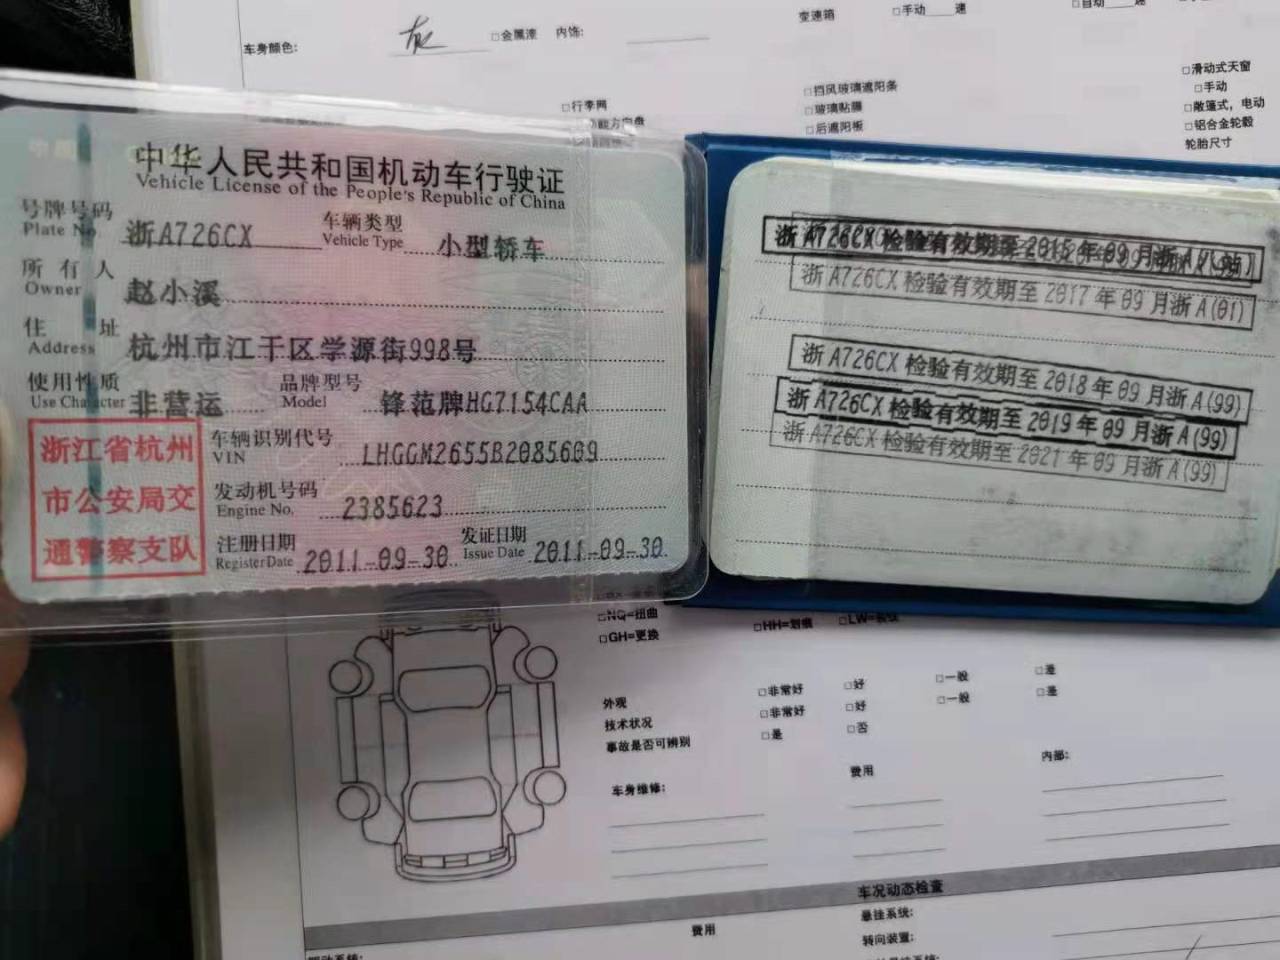 变速箱 □手动 速 □自动 速
车身颜色: 灰 □金属漆 内饰:
□滑动式天窗
□行李网 □挡风玻璃遮阳条 □手动
□玻璃贴膜 □敞篷式，电动
□后遮阳板 □铝合金轮毂
轮胎尺寸
中华人民共和国机动车行驶证
Vehicle License of the People's Republic of China
号牌号码 浙A726CX 车辆类型 小型轿车
Plate No. Vehicle Type
所有人 赵小溪
Owner
住址 杭州市江干区学源街998号
Address
使用性质 非营运 品牌型号 锋范牌HG7154CAA
Use Character Model
浙江省杭州
市公安局交
通警察支队
车辆识别代号 LHGGM2655B2085609
VIN
发动机号码 2385623
Engine No.
注册日期 2011-09-30 发证日期 2011-09-30
Register Date Issue Date
浙A726CX 检验有效期至 2015 年 09 月浙A
浙A726CX 检验有效期至 2017 年 09 月浙A(01)
浙A726CX 检验有效期至 2018 年 09 月浙A(99)
浙A726CX 检验有效期至 2019 年 09 月浙A(99)
浙A726CX 检验有效期至 2021 年 09 月浙A(99)
□NQ=扭曲 □HH=划痕
□GH=更换
外观 □非常好 □好 □一般 □差
技术状况 □非常好 □好 □一般 □差
事故是否可辨别 □是 □否
车身维修: 费用 内部:
车况动态检查
费用 悬挂系统:
转向装置: